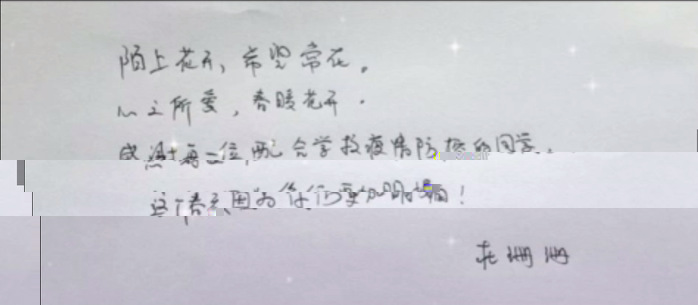 陌上花开，希望常在。
心之所爱，春暖花开。
感谢每一位配合学校疫情防控的同学，
这个春天因为你们更加明媚！
珊珊